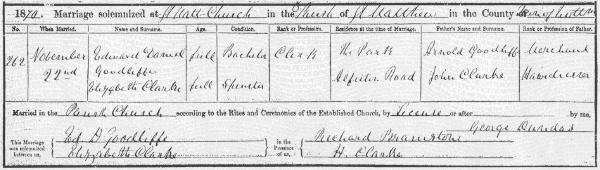 1890. Marriage solemnized at St Matt. Church in the Parish of St Matthew in the County Town of
No. When Married. Name and Surname. Age. Condition. Rank or Profession. Residence at the time of Marriage. Father's Name and Surname. Rank or Profession of Father.
262 November 22nd Edward Daniel Goodliffe full Bachelor Clerk The Park Arnold Goodliffe Merchant
Elizabeth Clarke full Spinster Road John Clarke
Married in the Parish Church according to the Rites and Ceremonies of the Established Church, by License or after by me,
George Dundas
This Marriage was solemnized between us, Ed. D. Goodliffe Elizabeth Clarke in the Presence of us, Richard H. Clarke